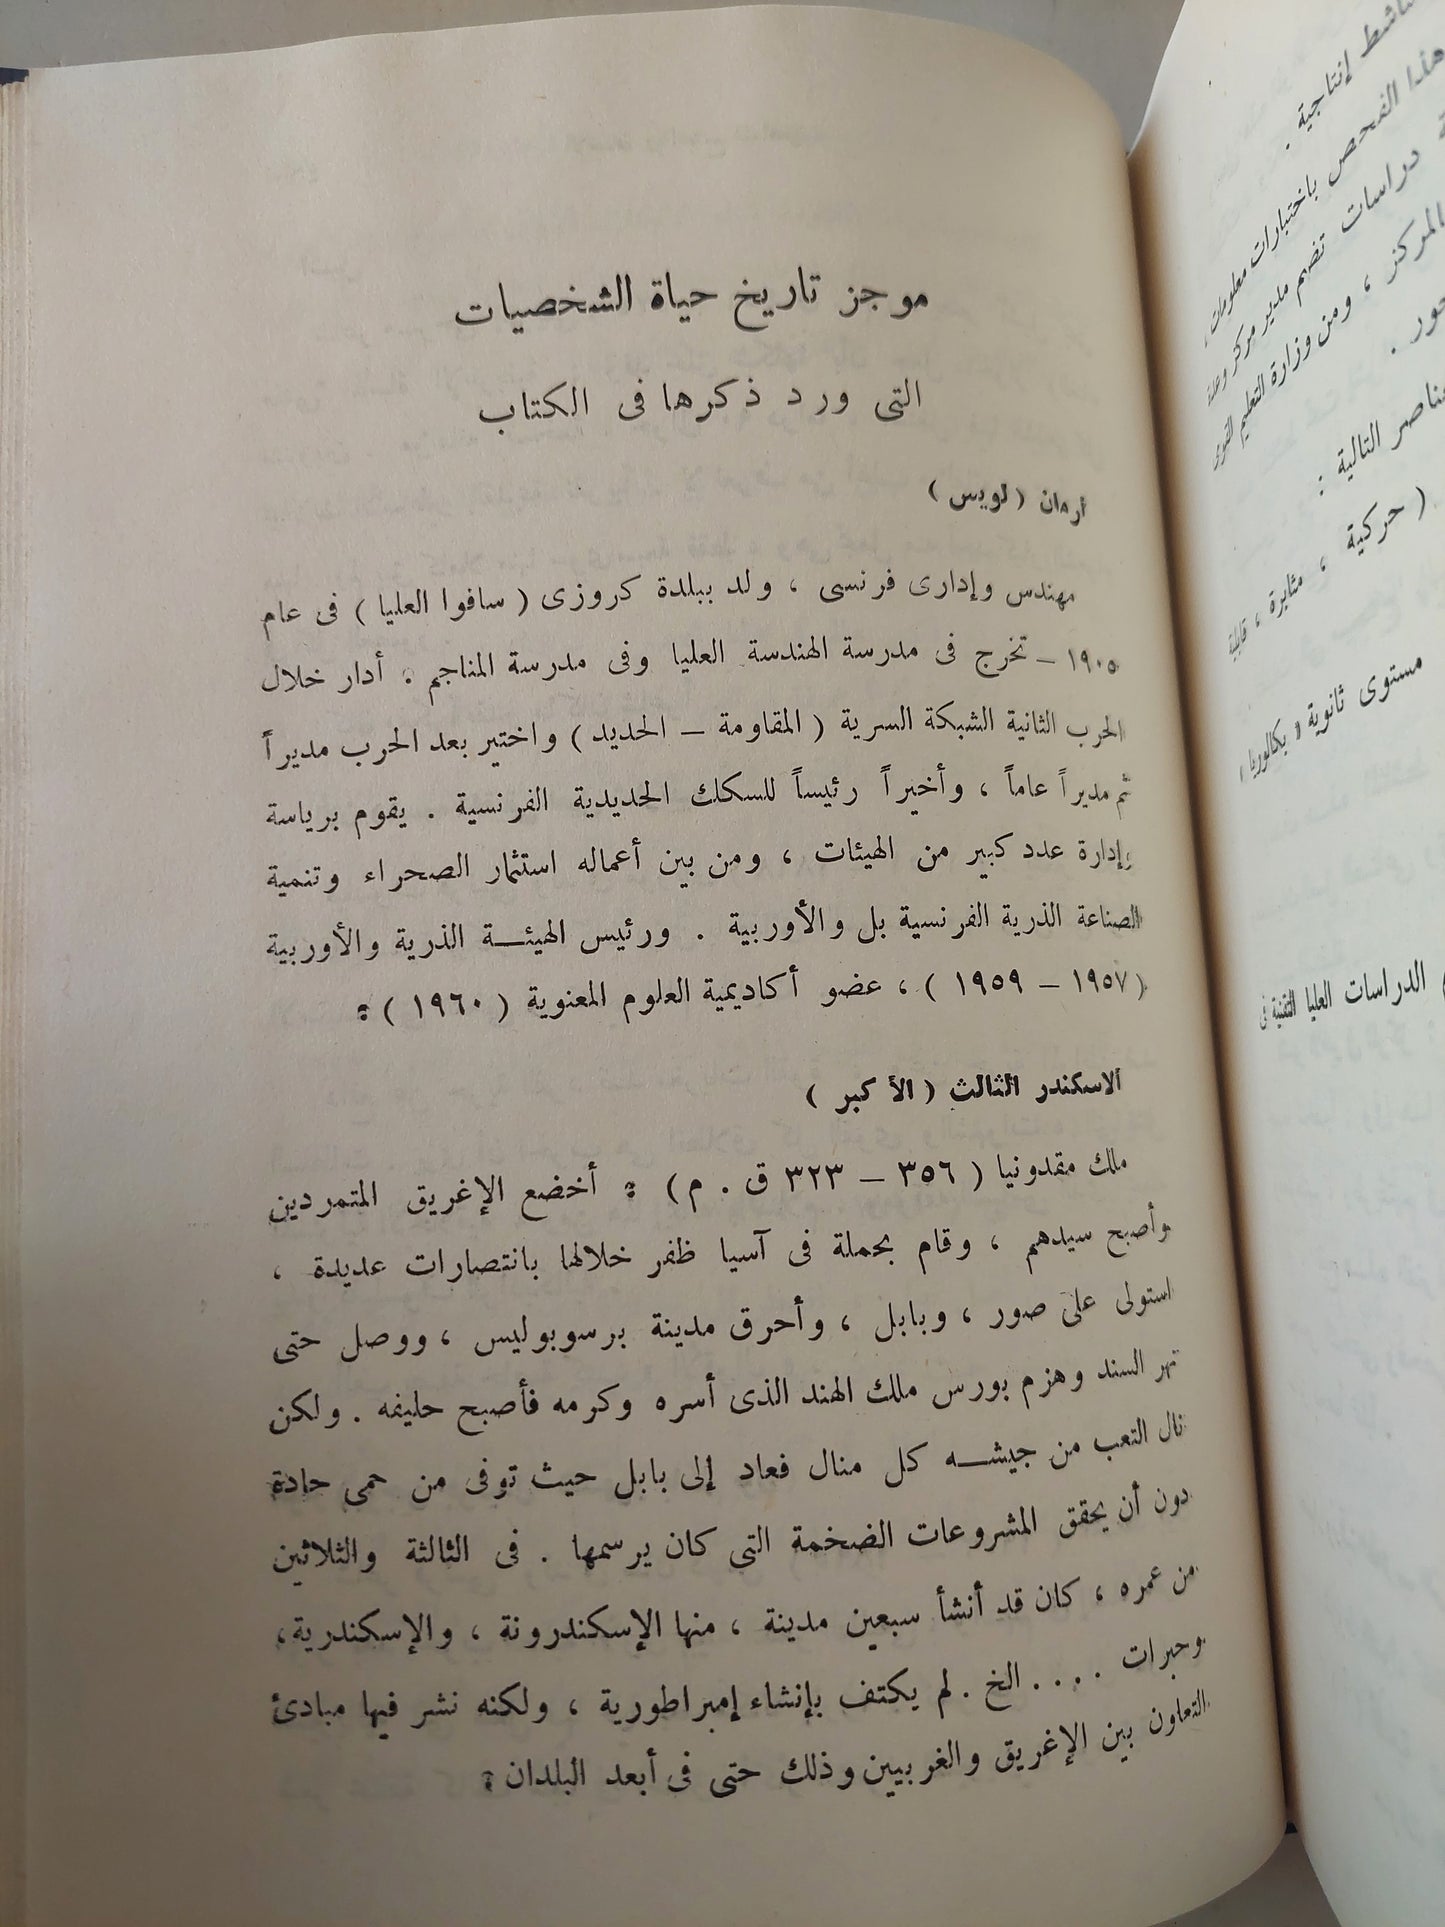 موجز تاريخ حياة الشخصيات
التى ورد ذكرها فى الكتاب
أرمان ( لويس )
مهندس وإدارى فرنسى ، ولد ببلدة كروزى ( سافوا العليا ) فى عام
١٩٠٥ – تخرج فى مدرسة الهندسة العليا وفى مدرسة المناجم . أدار خلال
الحرب الثانية الشبكة السرية ( المقاومة – الحديد ) واختير بعد الحرب مديراً
ثم مديراً عاماً ، وأخيراً رئيساً للسكك الحديدية الفرنسية . يقوم برياسة
وإدارة عدد كبير من الهيئات ، ومن بين أعماله استثمار الصحراء وتنمية
الصناعة الذرية الفرنسية بل والأوربية . ورئيس الهيئة الذرية والأوربية
( ١٩٥٧ – ١٩٥٩ ) ، عضو أكاديمية العلوم المعنوية ( ١٩٦٠ ) .
الاسكندر الثالث ( الأكبر )
ملك مقدونيا ( ٣٥٦ – ٣٢٣ ق . م ) . أخضع الإغريق المتمردين
وأصبح سيدهم ، وقام بحملة فى آسيا ظفر خلالها بانتصارات عديدة ،
استولى على صور ، وبابل ، وأحرق مدينة برسوبوليس ، ووصل حتى
نهر السند وهزم بورس ملك الهند الذى أسره وكرمه فأصبح حليفه . ولكن
نال التعب من جيشه كل منال فعاد إلى بابل حيث توفى من حمى حادة
دون أن يحقق المشروعات الضخمة التى كان يرسمها . فى الثالثة والثلاثين
من عمره ، كان قد أنشأ سبعين مدينة ، منها الإسكندرونة ، والإسكندرية ،
وحبرات .... الخ . لم يكتف بإنشاء إمبراطورية ، ولكنه نشر فيها مبادئ
التعاون بين الإغريق والغربيين وذلك حتى فى أبعد البلدان .
إنتاجية .
هذا الفحص باختبارات معلومات ،
دراسات تضم مدير مركز
المركز ، ومن وزارة التعليم القومى
التالية :
( حركية ، مثابرة ، قابلية
مستوى ثانوية « بكالوريا »
الدراسات العليا التقنية فى